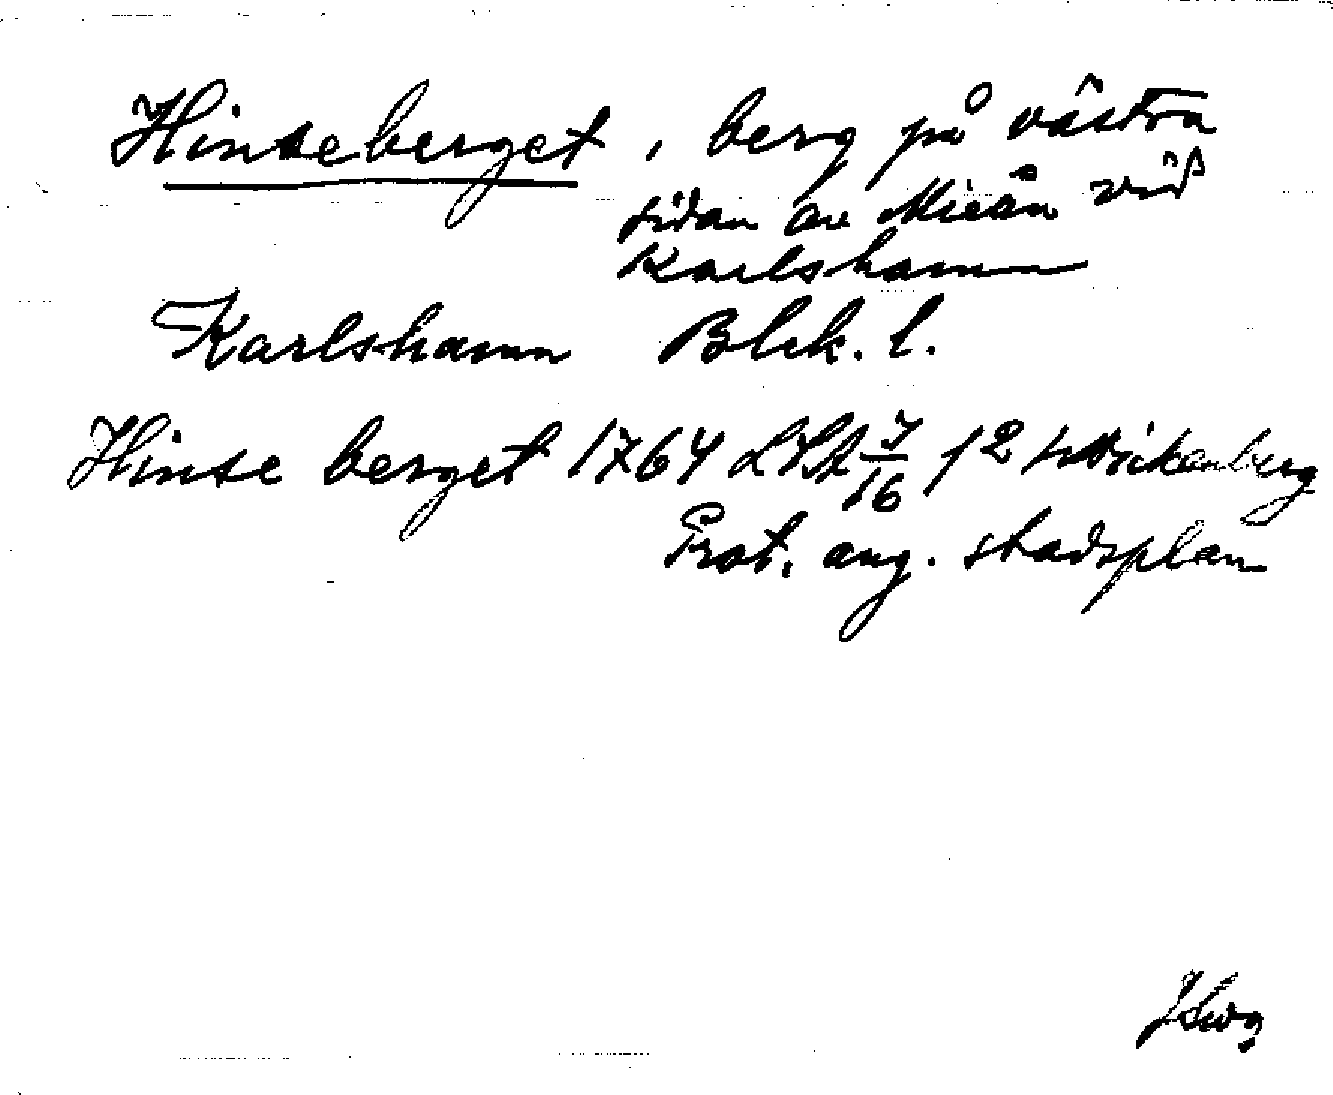 Hinseberget, berg på västra
sidan av Mieån vid
Karlshamn
Karlshamn Blek. l.
Hinse berget 1764 LSA 7/16 12 Wickenberg
Prot. ang. stadsplan